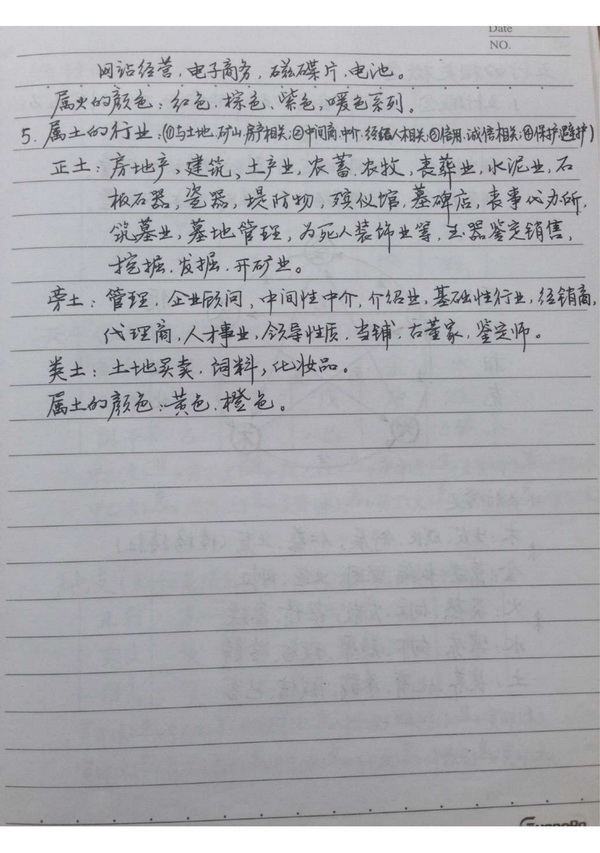 Date
NO.
网站经营、电子商务、磁碟片、电池。
属火的颜色：红色、棕色、紫色、暖色系列。
5. 属土的行业：(①与土地、矿山、房产相关;②中间商、中介、经纪人相关;③信用、诚信相关;④保护避护)
正土：房地产，建筑，土产业，农畜、农牧，丧葬业，水泥业，石
板石器，瓷器，堤防物，殡仪馆，墓碑店，丧事代办所，
筑墓业，墓地管理，为死人装饰业等，玉器鉴定销售，
挖掘、发掘、开矿业。
旁土：管理、企业顾问，中间性中介，介绍业，基础性行业，经销商，
代理商，人才事业，领导性质、当铺、古董家，鉴定师。
类土：土地买卖、饲料，化妆品。
属土的颜色：黄色、橙色。